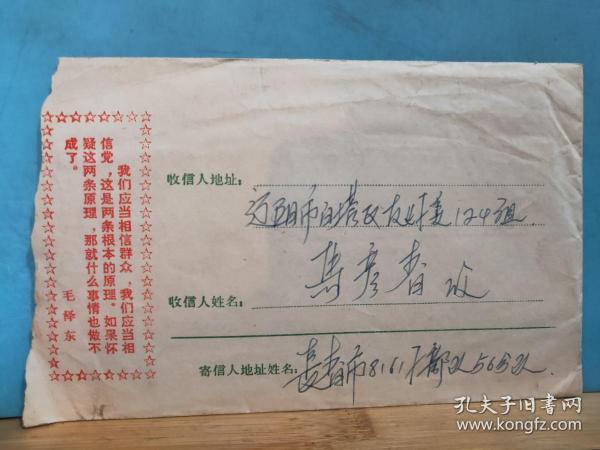 我们应当相信群众，我们应当相
信党，这是两条根本的原理。如果怀
疑这两条原理，那就什么事情也做不
成了。
毛泽东
收信人地址：
辽阳市白塔区友好委124组.
收信人姓名：
彦春收
寄信人地址姓名：
长春市8161部队56分队.
孔夫子旧书网
www.kongfz.com